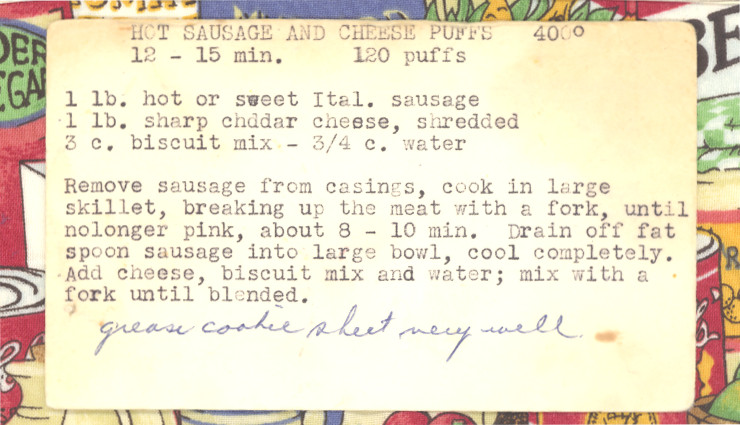 HOT SAUSAGE AND CHEESE PUFFS 400°
12 - 15 min. 120 puffs
1 lb. hot or sweet Ital. sausage
1 lb. sharp chddar cheese, shredded
3 c. biscuit mix - 3/4 c. water
Remove sausage from casings, cook in large
skillet, breaking up the meat with a fork, until
nolonger pink, about 8 - 10 min. Drain off fat
spoon sausage into large bowl, cool completely.
Add cheese, biscuit mix and water; mix with a
fork until blended.
grease cookie sheet very well